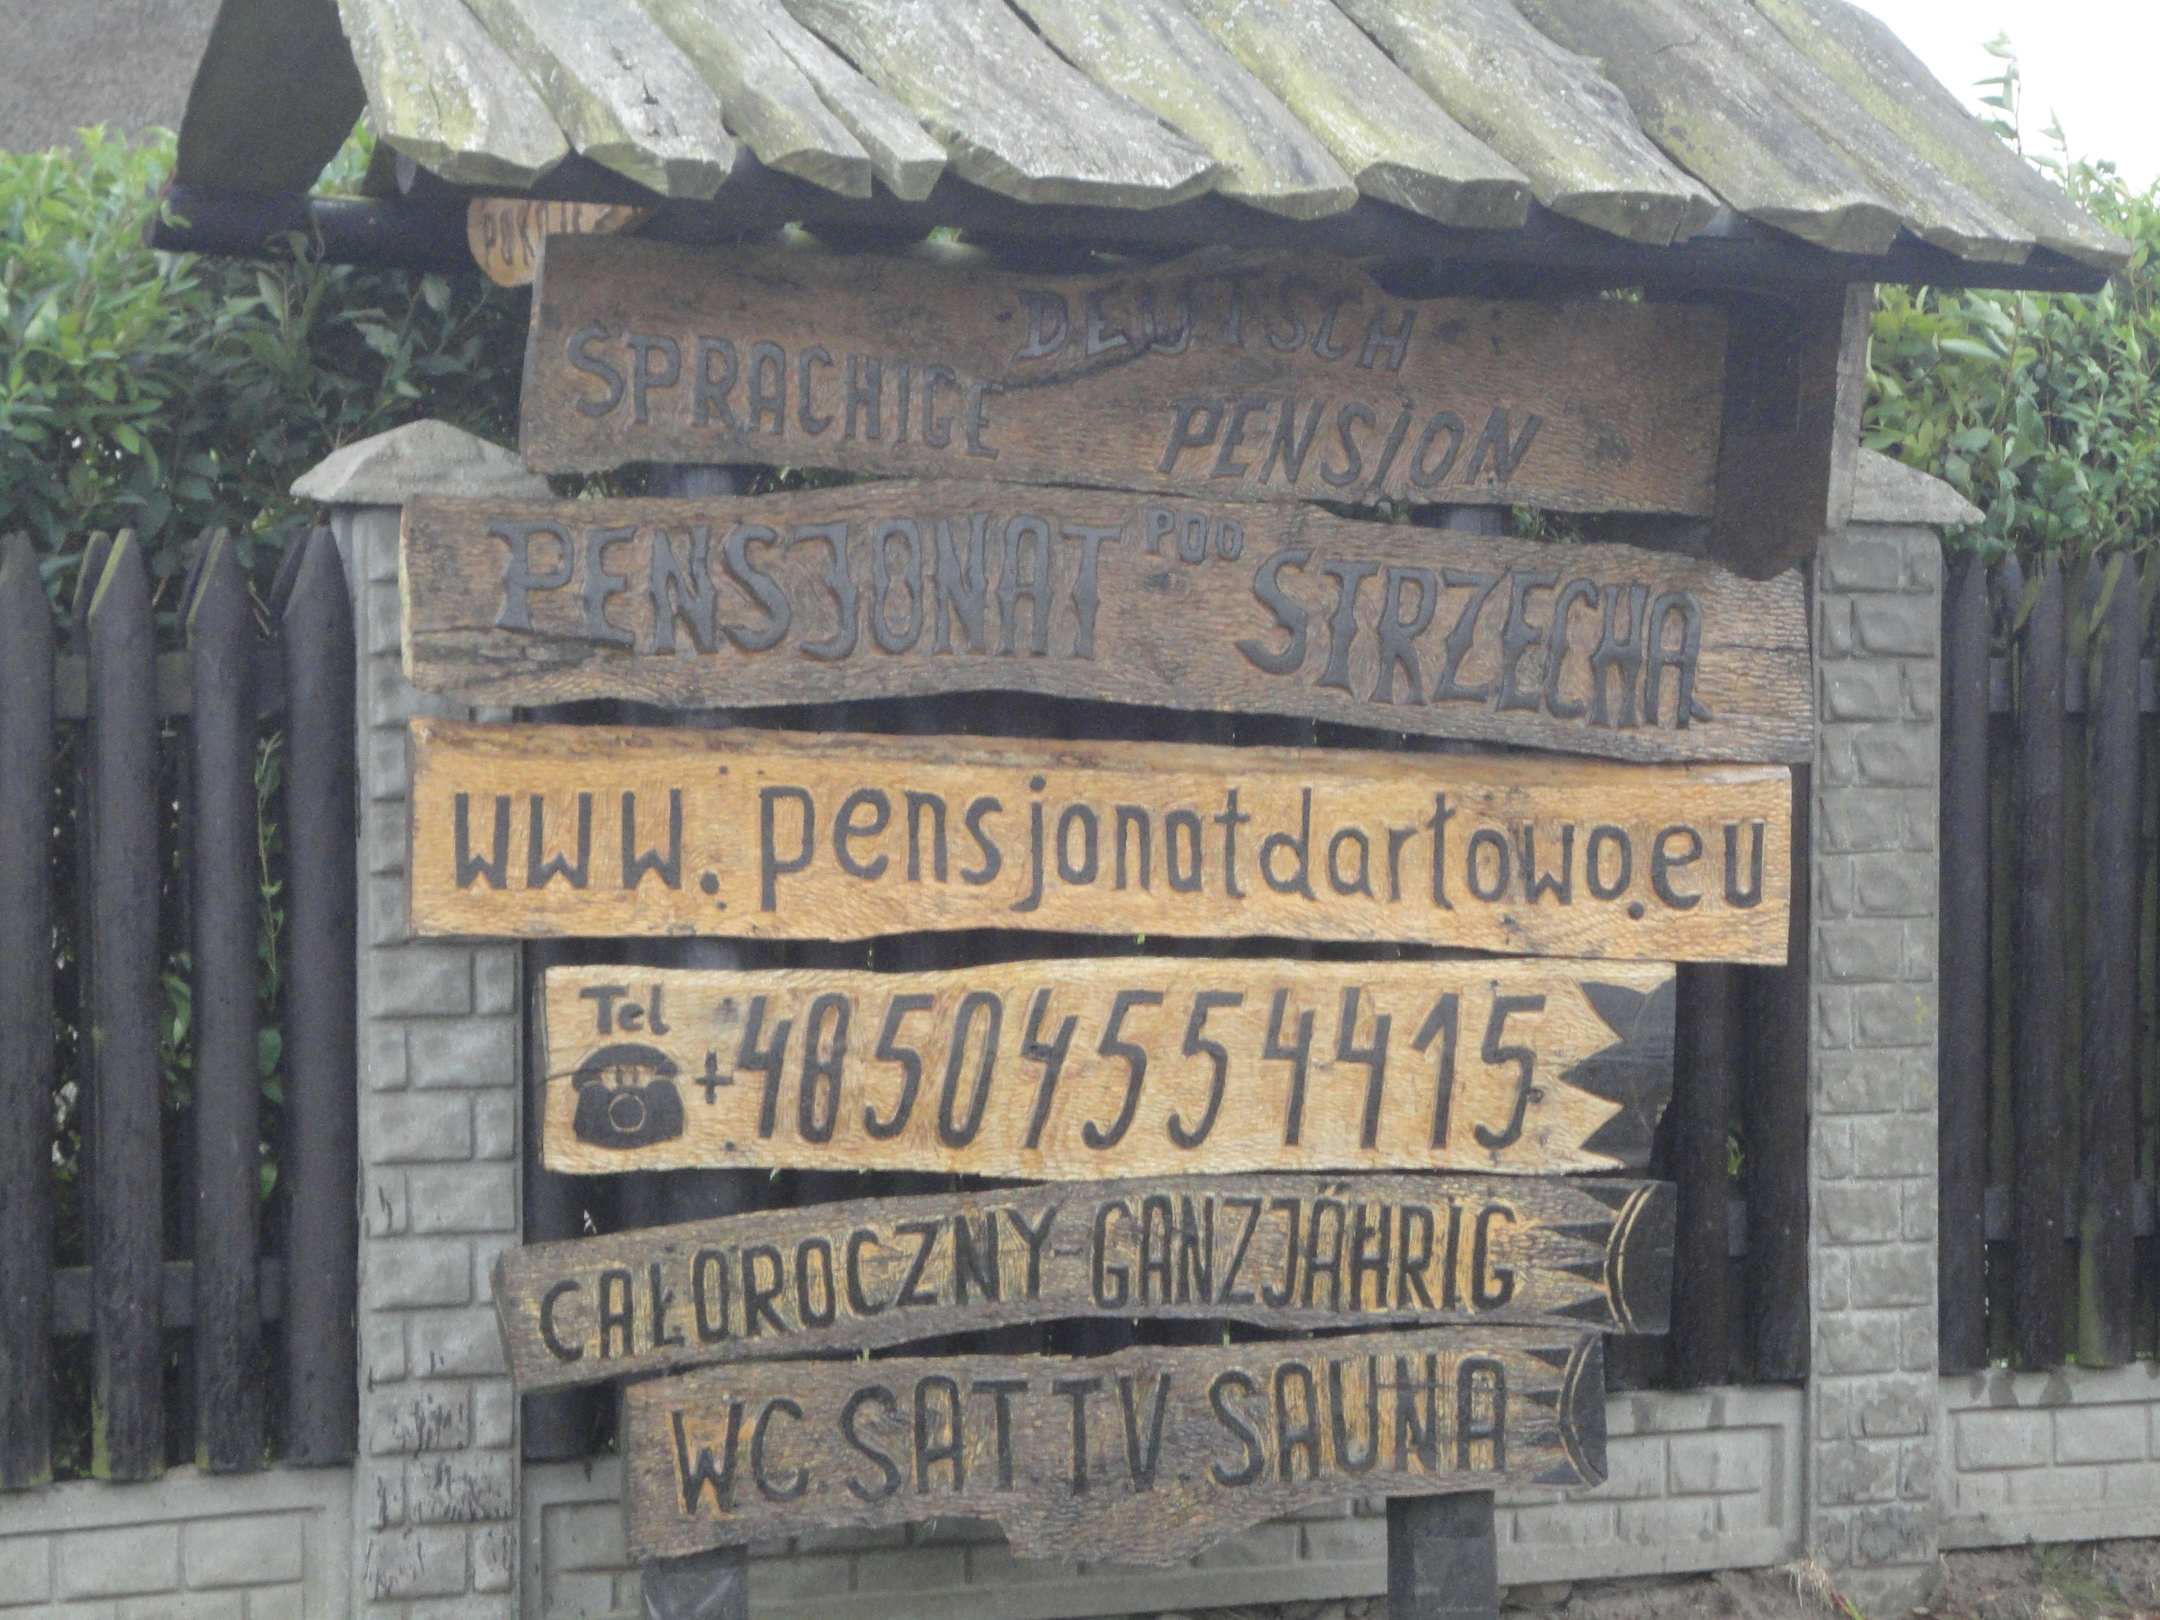 DEUTSCH
SPRACHIGE PENSION
PENSJONAT POD STRZECHA
www.pensjonatdarłowo.eu
Tel
+48504554415
CAŁOROCZNY-GANZJÄHRIG
WC.SAT TV.SAUNA